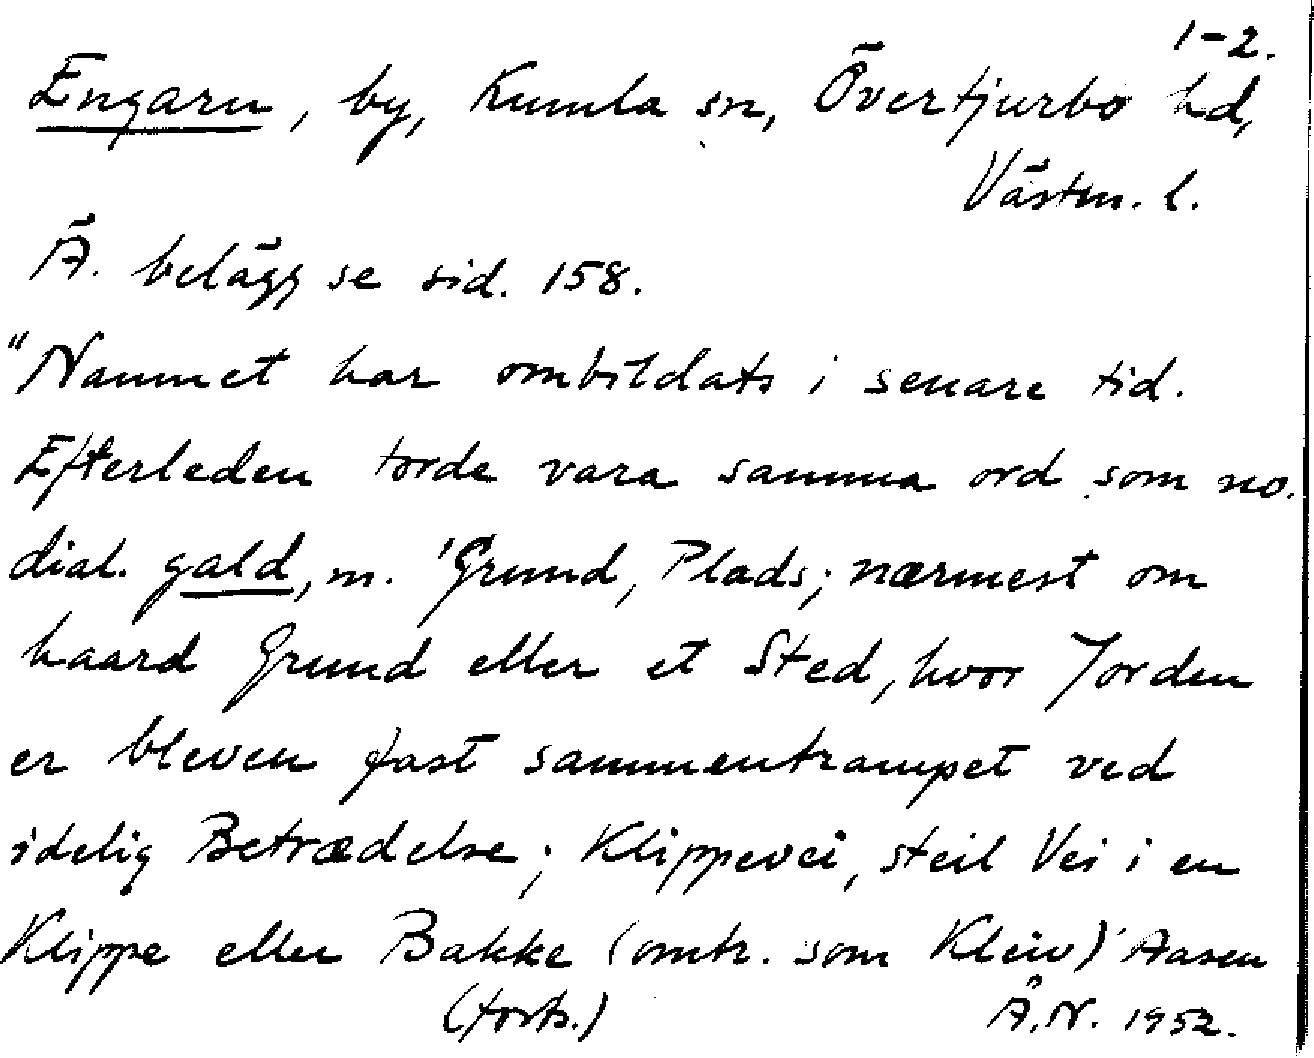 1-2.
Engarn, by, Kumla sn, Övertjurbo hd,
Västm. l.
Ä. belägg se sid. 158.
"Namnet har ombildats i senare tid.
Efterleden torde vara samma ord som no.
dial. gald, m. 'Grund, Plads; nærmest om
haard Grund eller et Sted, hvor Jorden
er bleven fast sammentrampet ved
idelig Betrædelse; Klippevei, steil Vei i en
Klippe eller Bakke (omtr. som Kleiv)' Aasen
(forts.) Å.N. 1952.